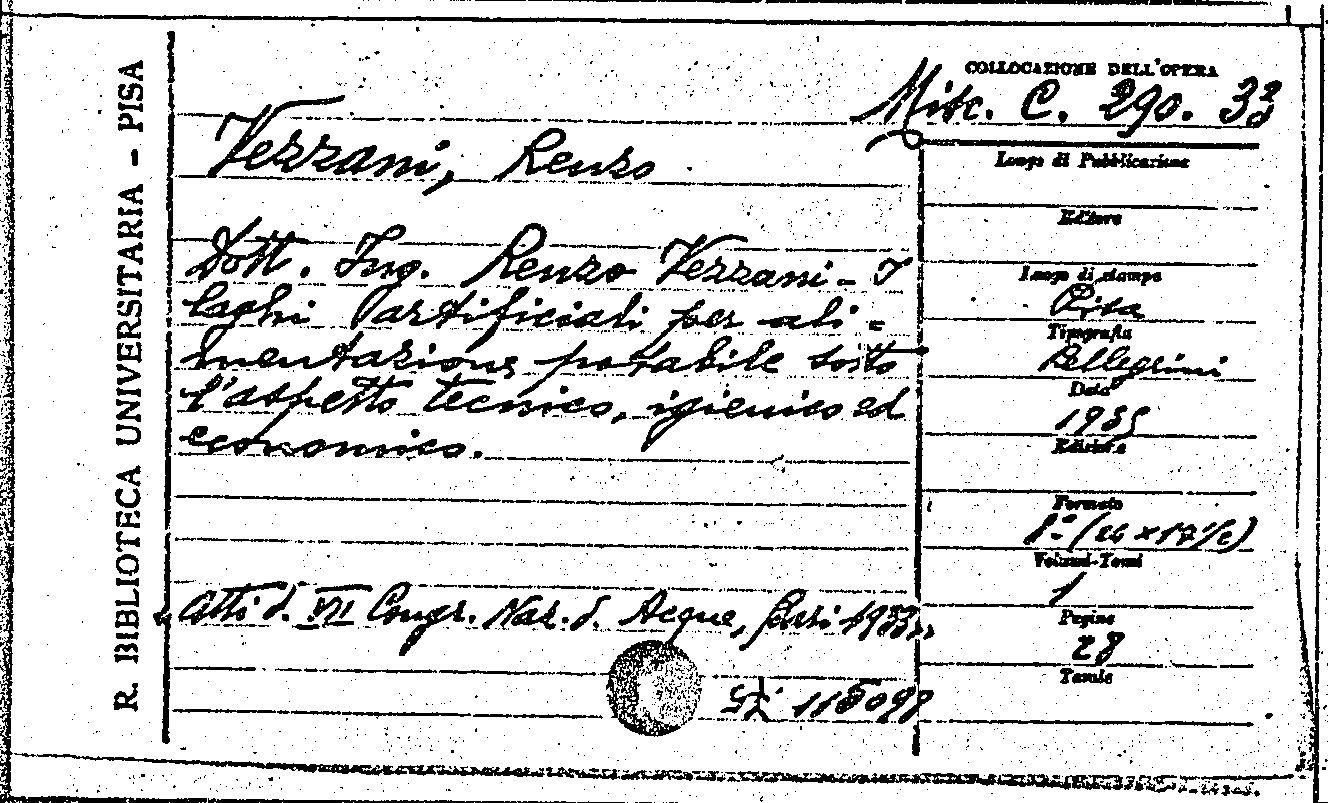 R. BIBLIOTECA UNIVERSITARIA - PISA
COLLOCAZIONE DELL'OPERA
Misc. C. 290. 33
Vezzani, Renzo
Dott. Ing. Renzo Vezzani - I
laghi artificiali per ali =
mentazione potabile sotto
l'aspetto tecnico, igienico ed
economico.
Atti d. VII Congr. Naz. d. Acque, Bari 1933
115098
Luogo di Pubblicazione
Editore
Luogo di stampa
Pisa
Tipografia
Pellegrini
Data
1935
Edizione
Formato
8° (26 x 17 1/2)
Volumi-Tomi
1
Pagine
28
Tavole